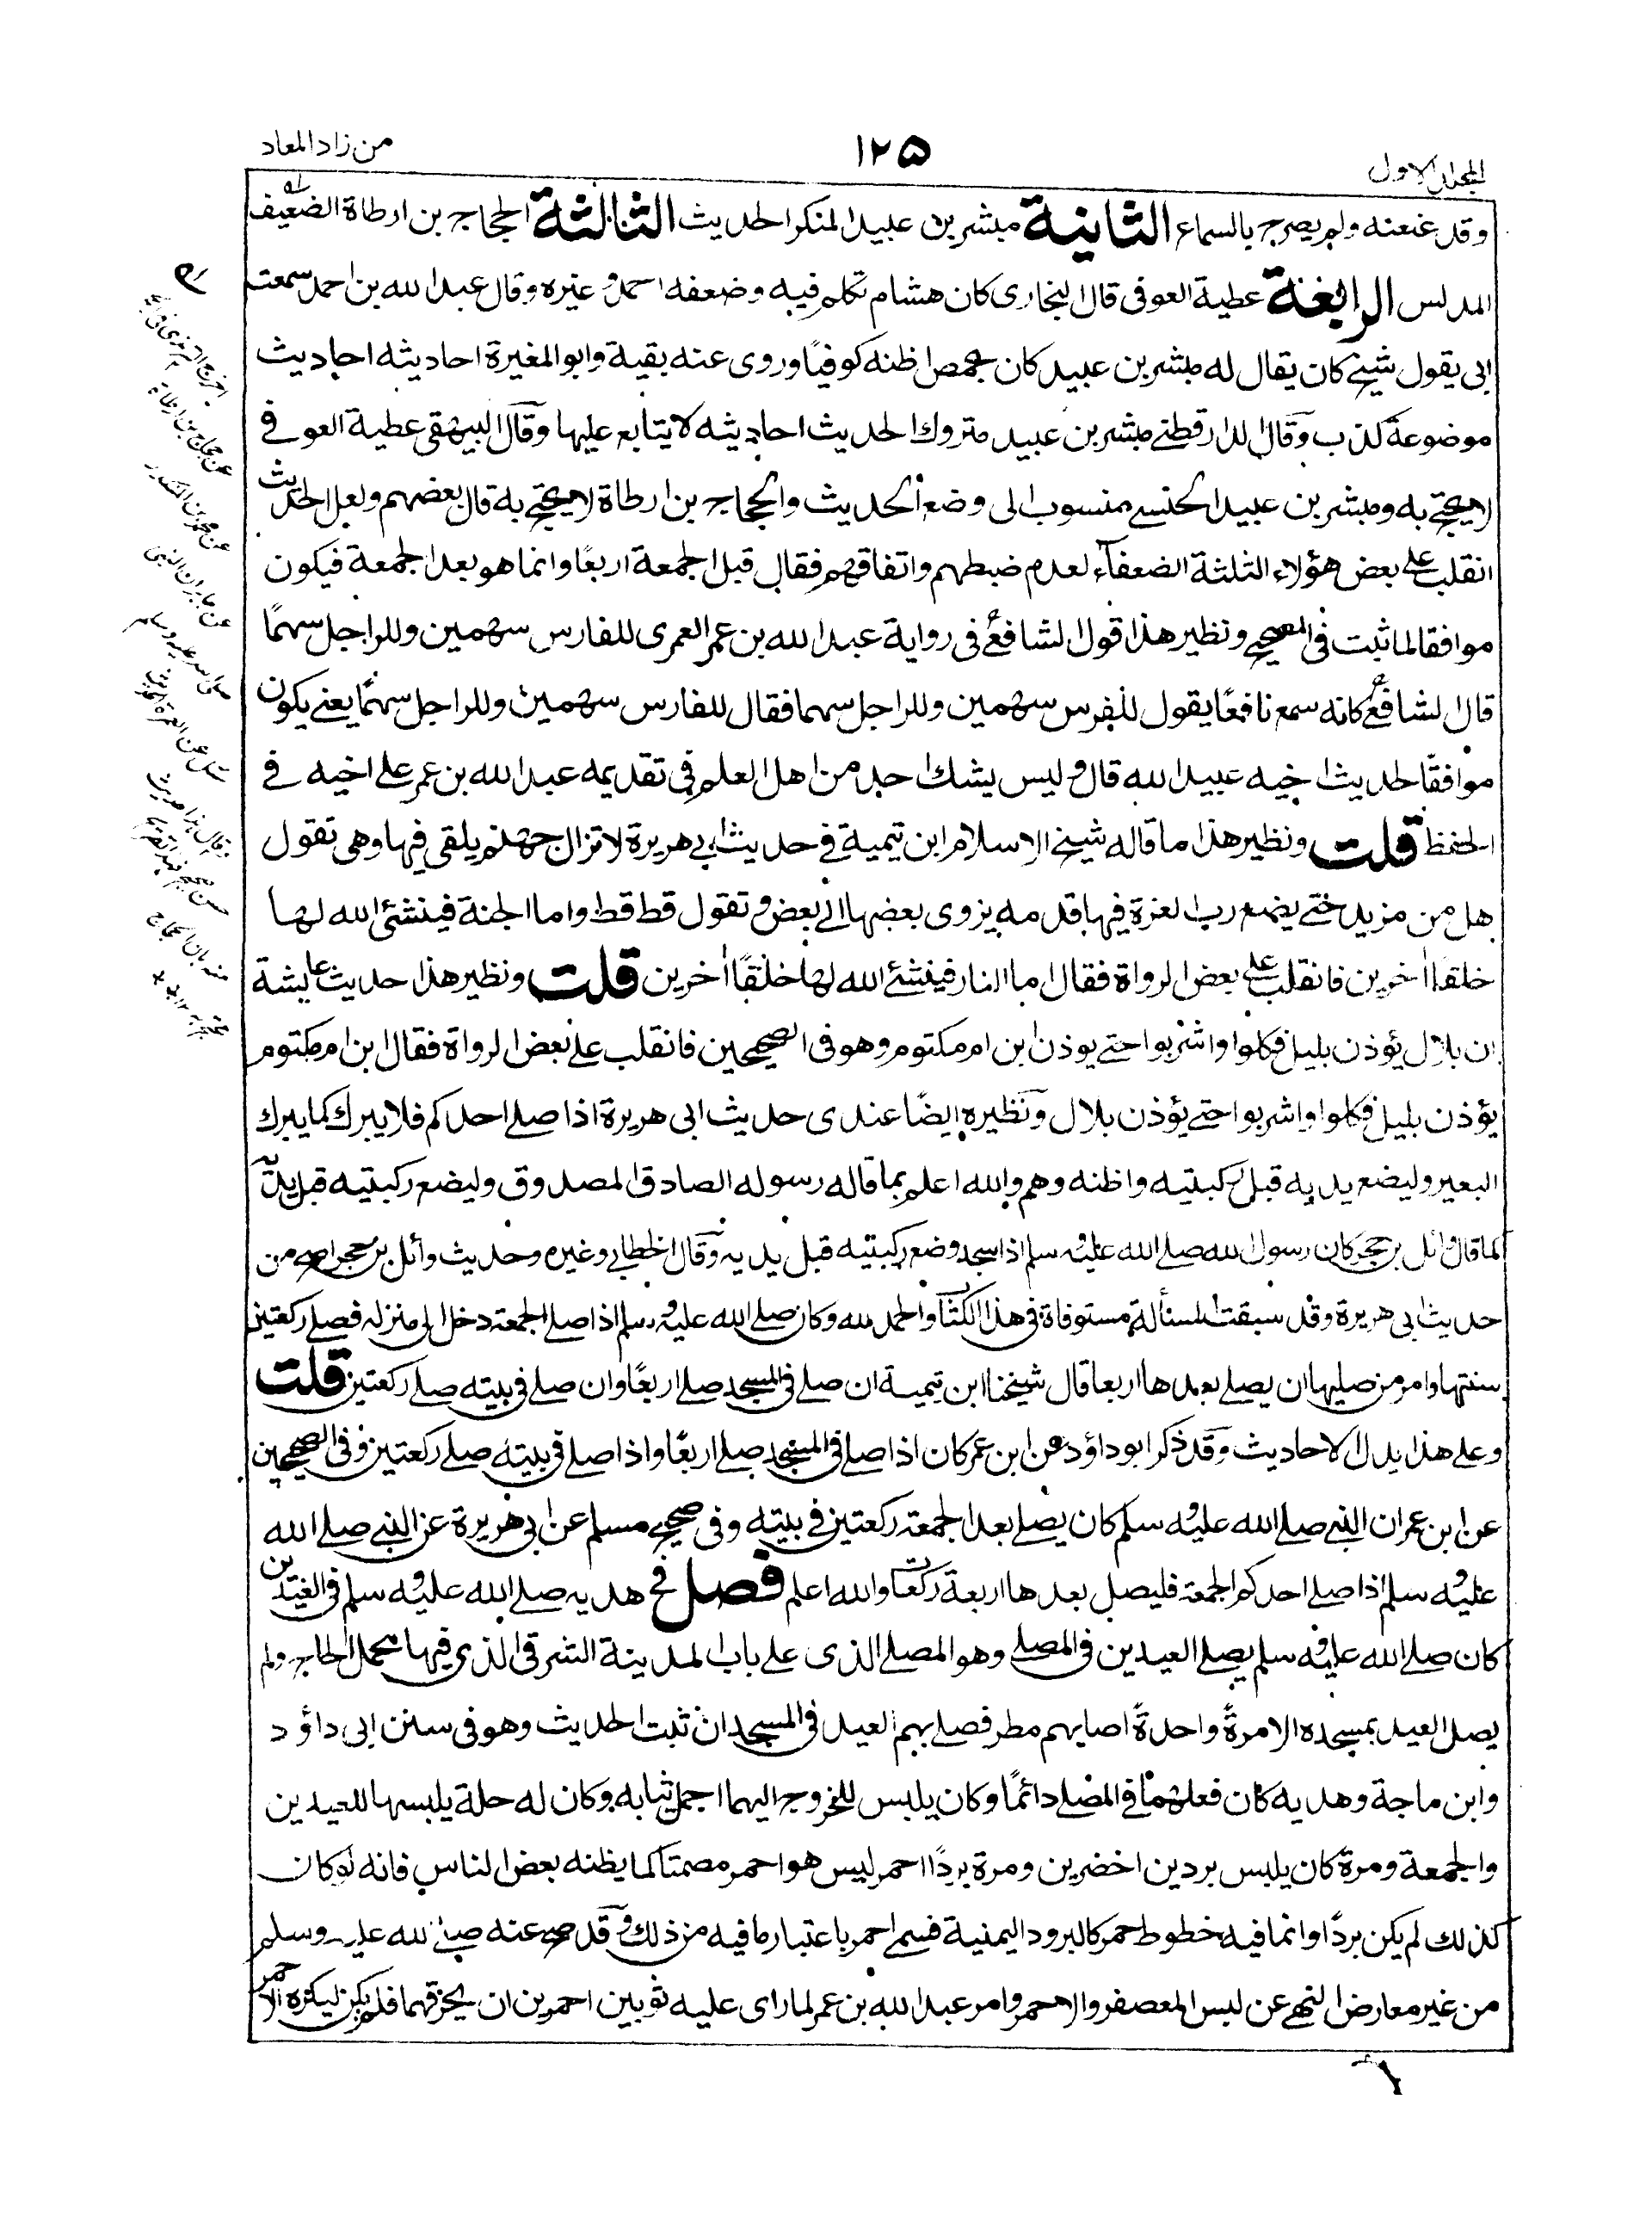 المجلد الاول
١٢٥
من زاد المعاد
وقد عنعنه ولم يصرح بالسماع الثانية مبشر بن عبيد المنكر الحديث الثالثة الحجاج بن ارطاة الضعيف
المدلس الرابعة عطية العوفى قال البخارى كان هشام تكلم فيه وضعفه احمد وغيره وقال عبد الله بن احمد سمعت
ابى يقول شيخ كان يقال له مبشر بن عبيد كان بحمص اظنه كوفيًا وروى عنه بقية وابو المغيرة احاديثه احاديث
موضوعة كذب وقال الدارقطنى مبشر بن عبيد متروك الحديث احاديثه لا يتابع عليها وقال البيهقى عطية العوفى
لا يحتج به ومبشر بن عبيد الحمصى منسوب الى وضع الحديث والحجاج بن ارطاة لا يحتج به قال بعضهم ولعل الحديث
انقلب على بعض هؤلاء الثلثة الضعفاء لعدم ضبطهم واتفاقهم فقال قبل الجمعة اربعًا وانما هو بعد الجمعة فيكون
موافقا لما ثبت فى الصحيح ونظير هذا قول الشافعى فى رواية عبد الله بن عمر العمرى للفارس سهمين وللراجل سهمًا
قال الشافعى كانه سمع نافعًا يقول للفرس سهمين وللراجل سهما فقال للفارس سهمين وللراجل سهمًا يعنى يكون
موافقًا لحديث اخيه عبيد الله قال وليس يشك احد من اهل العلم فى تقديمه عبد الله بن عمر على اخيه فى
الحفظ قلت ونظير هذا ما قاله شيخ الاسلام ابن تيمية فى حديث ابى هريرة لا تزال جهنم يلقى فيها وهى تقول
هل من مزيد حتى يضع رب العزة فيها قدمه يزوى بعضها الى بعض وتقول قط قط واما الجنة فينشئ الله لها
خلقًا اخرين فانقلب على بعض الرواة فقال اما النار فينشئ الله لها خلقًا اخرين قلت ونظير هذا حديث عايشة
ان بلال يؤذن بليل فكلوا واشربوا حتى يوذن ابن ام مكتوم وهو فى الصحيحين فانقلب على بعض الرواة فقال ابن ام مكتوم
يؤذن بليل فكلوا واشربوا حتى يؤذن بلال ونظيره ايضًا عندى حديث ابى هريرة اذا صلى احدكم فلا يبرك كما يبرك
البعير وليضع يديه قبل ركبتيه واظنه وهم والله اعلم بما قاله رسوله الصادق المصدوق وليضع ركبتيه قبل يديه
كما قال وائل بن حجر كان رسول الله صلى الله عليه وسلم اذا سجد وضع ركبتيه قبل يديه وقال الخطابى وغيره وحديث وائل بن حجر اصح من
حديث ابى هريرة وقد سبقت المسألة مستوفاة فى هذا الكتاب والحمد لله وكان صلى الله عليه وسلم اذا صلى الجمعة دخل الى منزله فصلى ركعتين
سنتها وامر من صليها ان يصلى بعدها اربعا قال شيخنا ابن تيمية ان صلى فى المسجد صلى اربعًا وان صلى فى بيته صلى ركعتين قلت
وعلى هذا يدل الاحاديث وقد ذكر ابو داؤد عن ابن عمر كان اذا صلى فى المسجد صلى اربعًا واذا صلى فى بيته صلى ركعتين وفى الصحيحين
عن ابن عمر ان النبى صلى الله عليه وسلم كان يصلى بعد الجمعة ركعتين فى بيته وفى صحيح مسلم عن ابى هريرة عن النبى صلى الله
عليه وسلم اذا صلى احدكم الجمعة فليصل بعدها اربعة ركعات والله اعلم فصل فى هديه صلى الله عليه وسلم فى العيدين
كان صلى الله عليه وسلم يصلى العيدين فى المصلى وهو المصلى الذى على باب المدينة الشرقى الذى فيها محمل الحاج ولم
يصل العيد بمسجده الا مرةً واحدةً اصابهم مطر فصلى بهم العيد فى المسجد ان ثبت الحديث وهو فى سنن ابى داؤد
وابن ماجة وهديه كان فعلهما فى المصلى دائمًا وكان يلبس للخروج اليهما اجمل ثيابه وكان له حلة يلبسها للعيدين
والجمعة ومرة كان يلبس بردين اخضرين ومرة بردًا احمر ليس هو احمر مصمتا كما يظنه بعض الناس فانه لو كان
كذلك لم يكن بردًا وانما فيه خطوط حمر كالبرود اليمنية فسمى احمر باعتبار ما فيه من ذلك وقد صح عنه صلى الله عليه وسلم
من غير معارض النهى عن لبس المعصفر والاحمر وامر عبد الله بن عمر لما راى عليه ثوبين احمرين ان يحرقهما فلم يكن ليكره الاحمر
عن حجاج بن ارطاة
عن محمد بن المنكدر
عن جابر ان النبى
صلى الله عليه وسلم
سئل عن العمرة